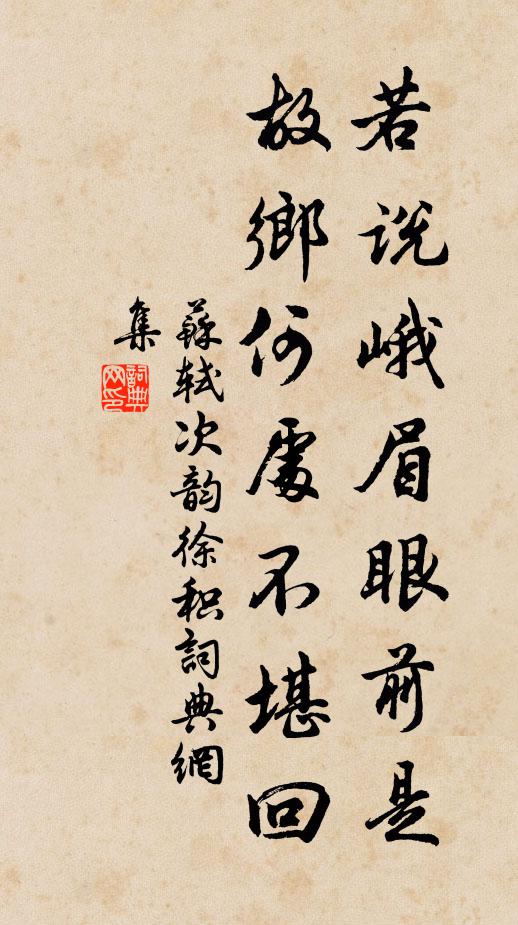 若说峨眉眼前是
故鄉何處不堪回
蘇軾次韵徐积詞典網
集
詞典網印